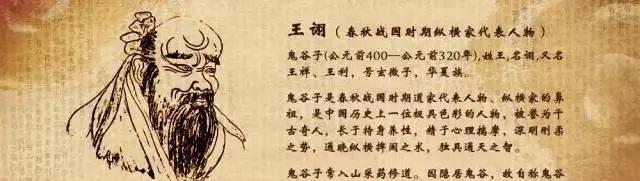 王诩（春秋战国时期纵横家代表人物）
鬼谷子(公元前400—公元前320年),姓王,名诩,又名
王禅、王利，号玄微子，华夏族。
鬼谷子是春秋战国时期道家代表人物、纵横家的鼻
祖，是中国历史上一位极具色彩的人物，被誉为千
古奇人，长于持身养性，精于心理揣摩，深明刚柔
之势，通晓纵横捭阖之术，独具通天之智。
鬼谷子常入山采药修道。因隐居鬼谷，故自称鬼谷